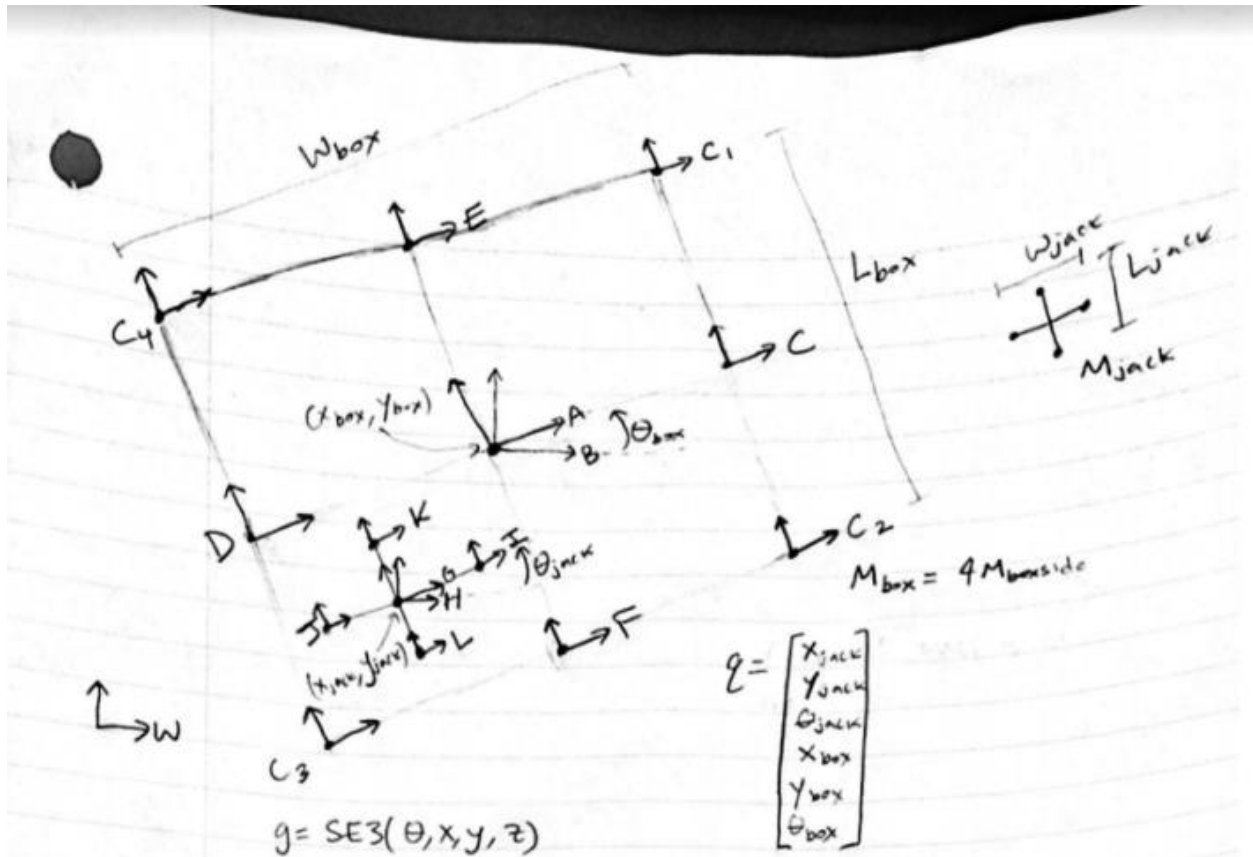 W box
C1
E
L box
W jack
L jack
C4
C
M jack
(x box, y box)
A
θ box
B
C2
D
K
I
θ jack
G
H
M box = 4 M boxside
J
L
F
(x jack, y jack)
q = [
x jack
y jack
θ jack
x box
y box
θ box
]
W
C3
g = SE3(θ, x, y, z)